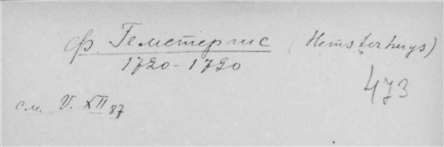 Ф. Гемстергис (Hemsterhuys)
1720-1790
473
см. V. XII 87